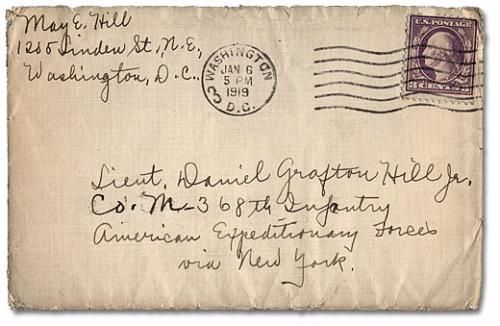 May E. Hill
1255 Linden St., N.E.,
Washington, D.C.,
WASHINGTON
JAN 6
5 PM
1919
D.C.
3
U.S. POSTAGE
3 CENTS 3
Lieut. Daniel Grafton Hill Jr.
Co. M - 368th Infantry
American Expeditionary Forces
via New York.